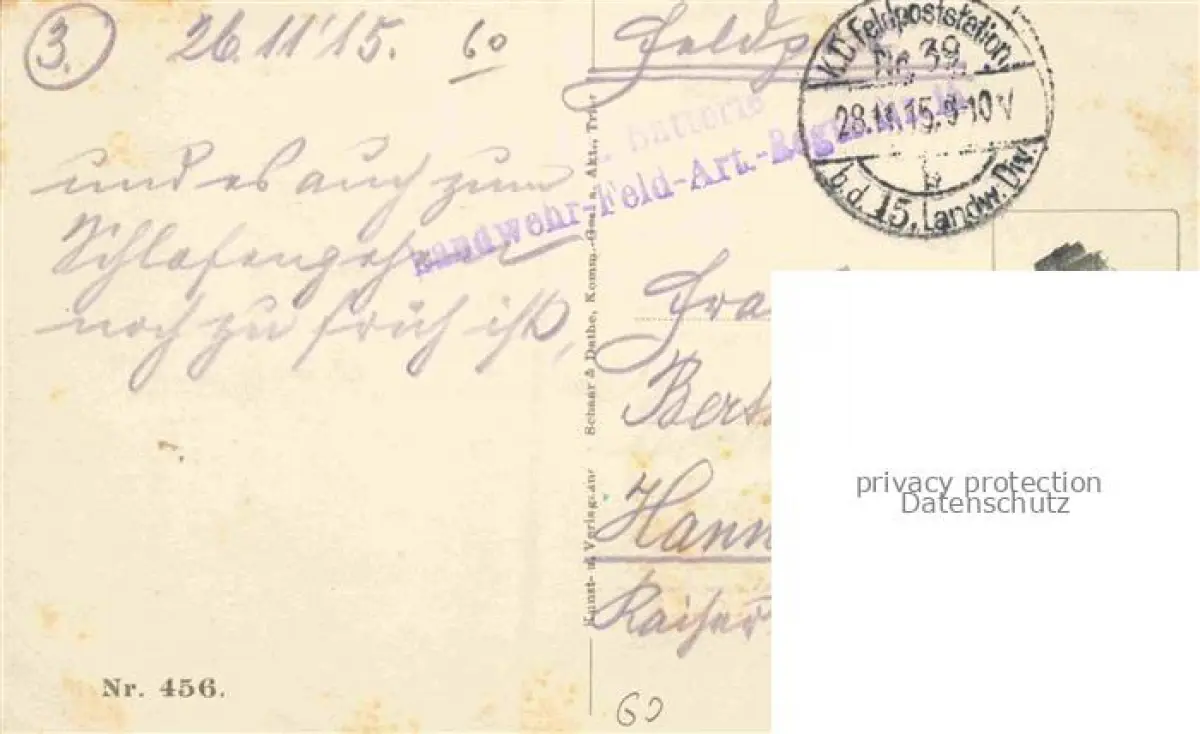 3. 26.11.'15. 60
und es auch zum
Schlafengehen
noch zu früh ist,
Nr. 456.
Kunst- u. Verlagsanst. Schaar & Dathe, Komm.-Ges. a. Akt., Trier
K.D. Feldpoststation
Nr. 39
28.11.15. 9-10 V
b
b.d. 15. Landw. Div.
Batterie
Landwehr-Feld-Art.-Regt.
Hann
Kaiser
60
privacy protection
Datenschutz